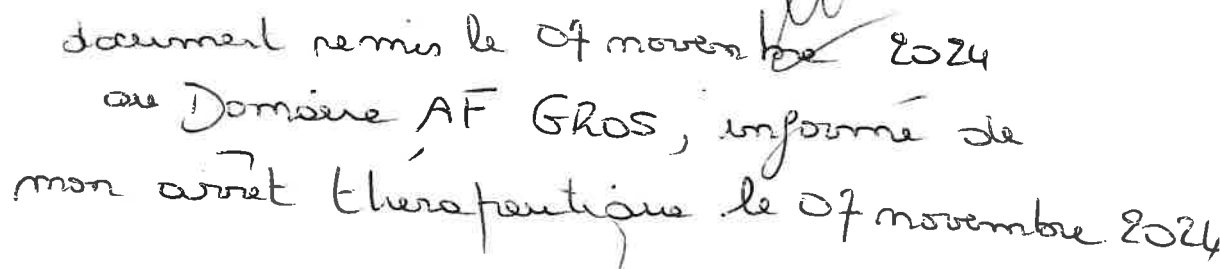 document remis le 07 novembre 2024
au Domaine AF GROS, informé de
mon arrêt thérapeutique le 07 novembre 2024